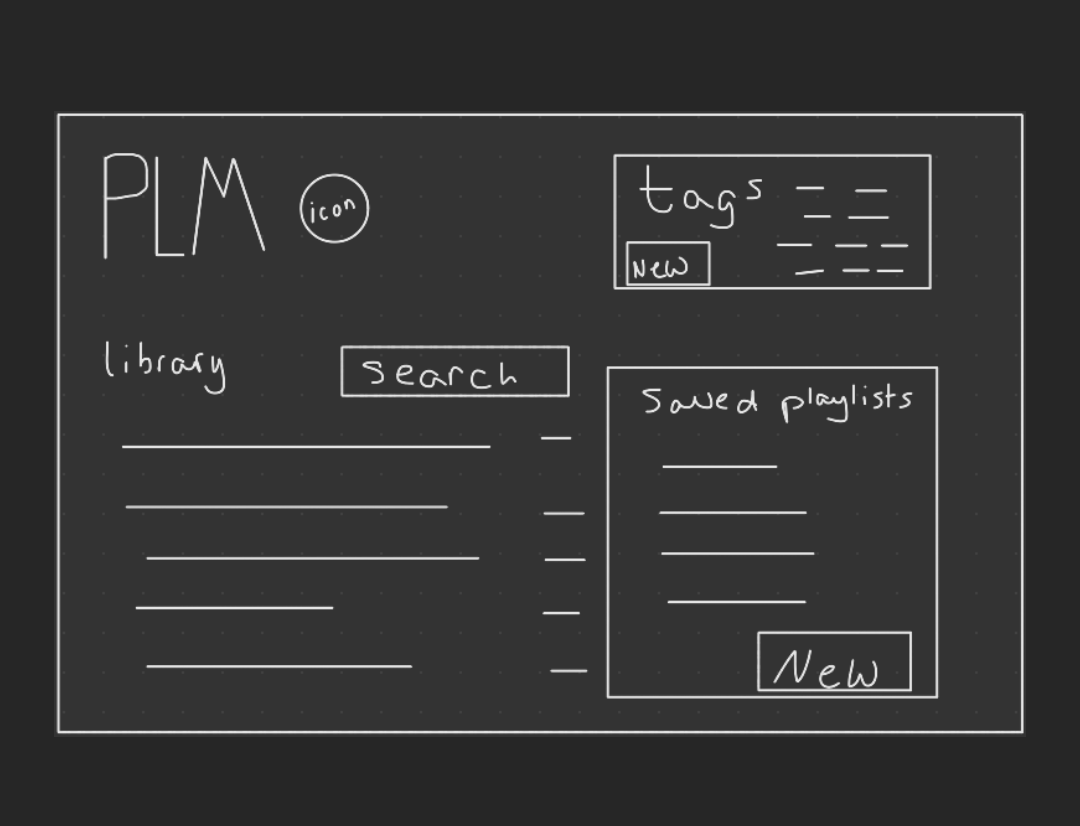 PLM
icon
tags
New
library
search
Saved playlists
New